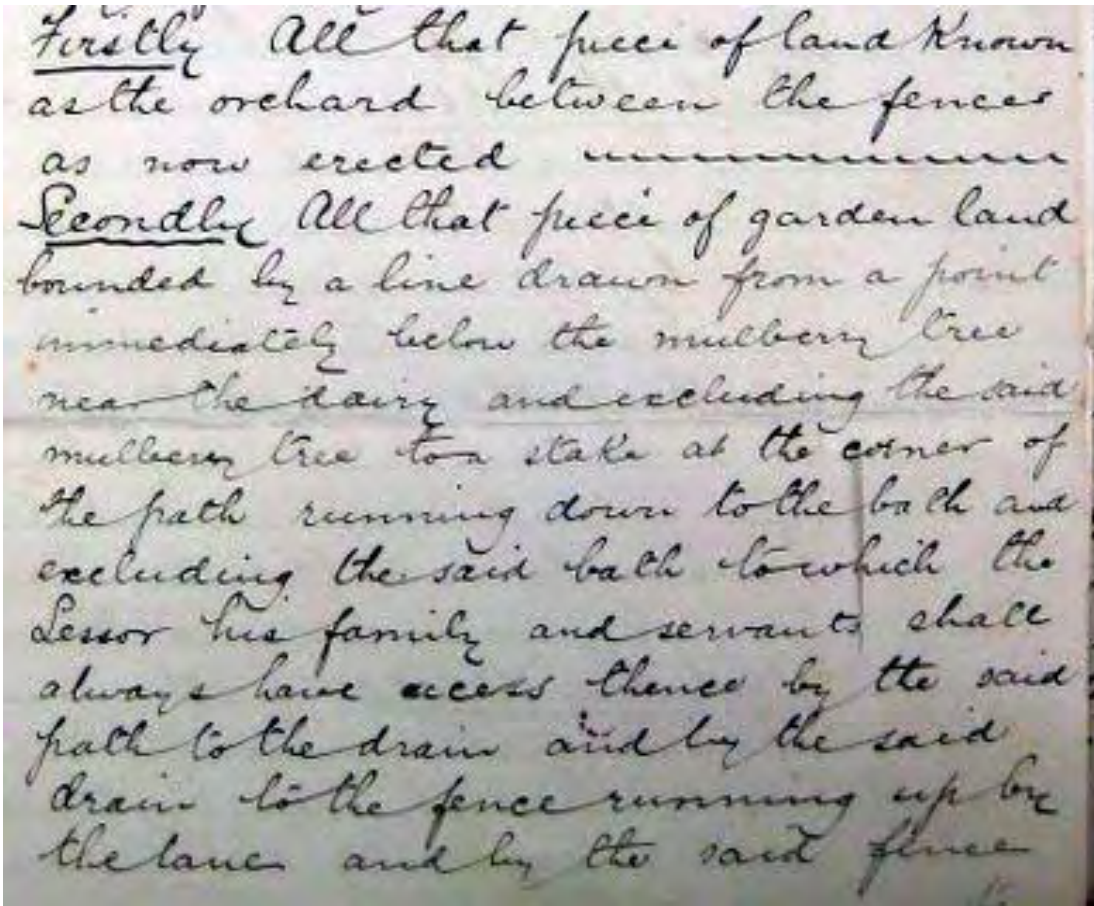 Firstly All that piece of land Known
as the orchard between the fences
as now erected
Secondly All that piece of garden land
bounded by a line drawn from a point
immediately below the mulberry tree
near the dairy and excluding the said
mulberry tree to a stake at the corner of
the path running down to the bath and
excluding the said bath to which the
Lessor his family and servants shall
always have access thence by the said
path to the drain and by the said
drain to the fence running up by
the lane and by the said fence